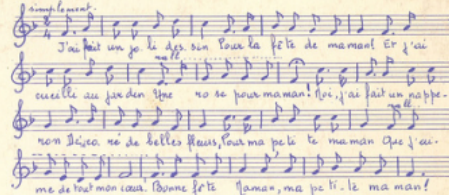 simplement.
J'ai fait un jo li des sin Pour la fête de maman! Et j'ai
rall
cueilli au jar den Une ro se pour maman! Moi, j'ai fait un nappe-
rall
ron Déco ré de belles fleurs, Pour ma pe ti te maman Que j'ai-
me de tout mon cœur. Bonne fête Maman, ma pe ti-te ma man!